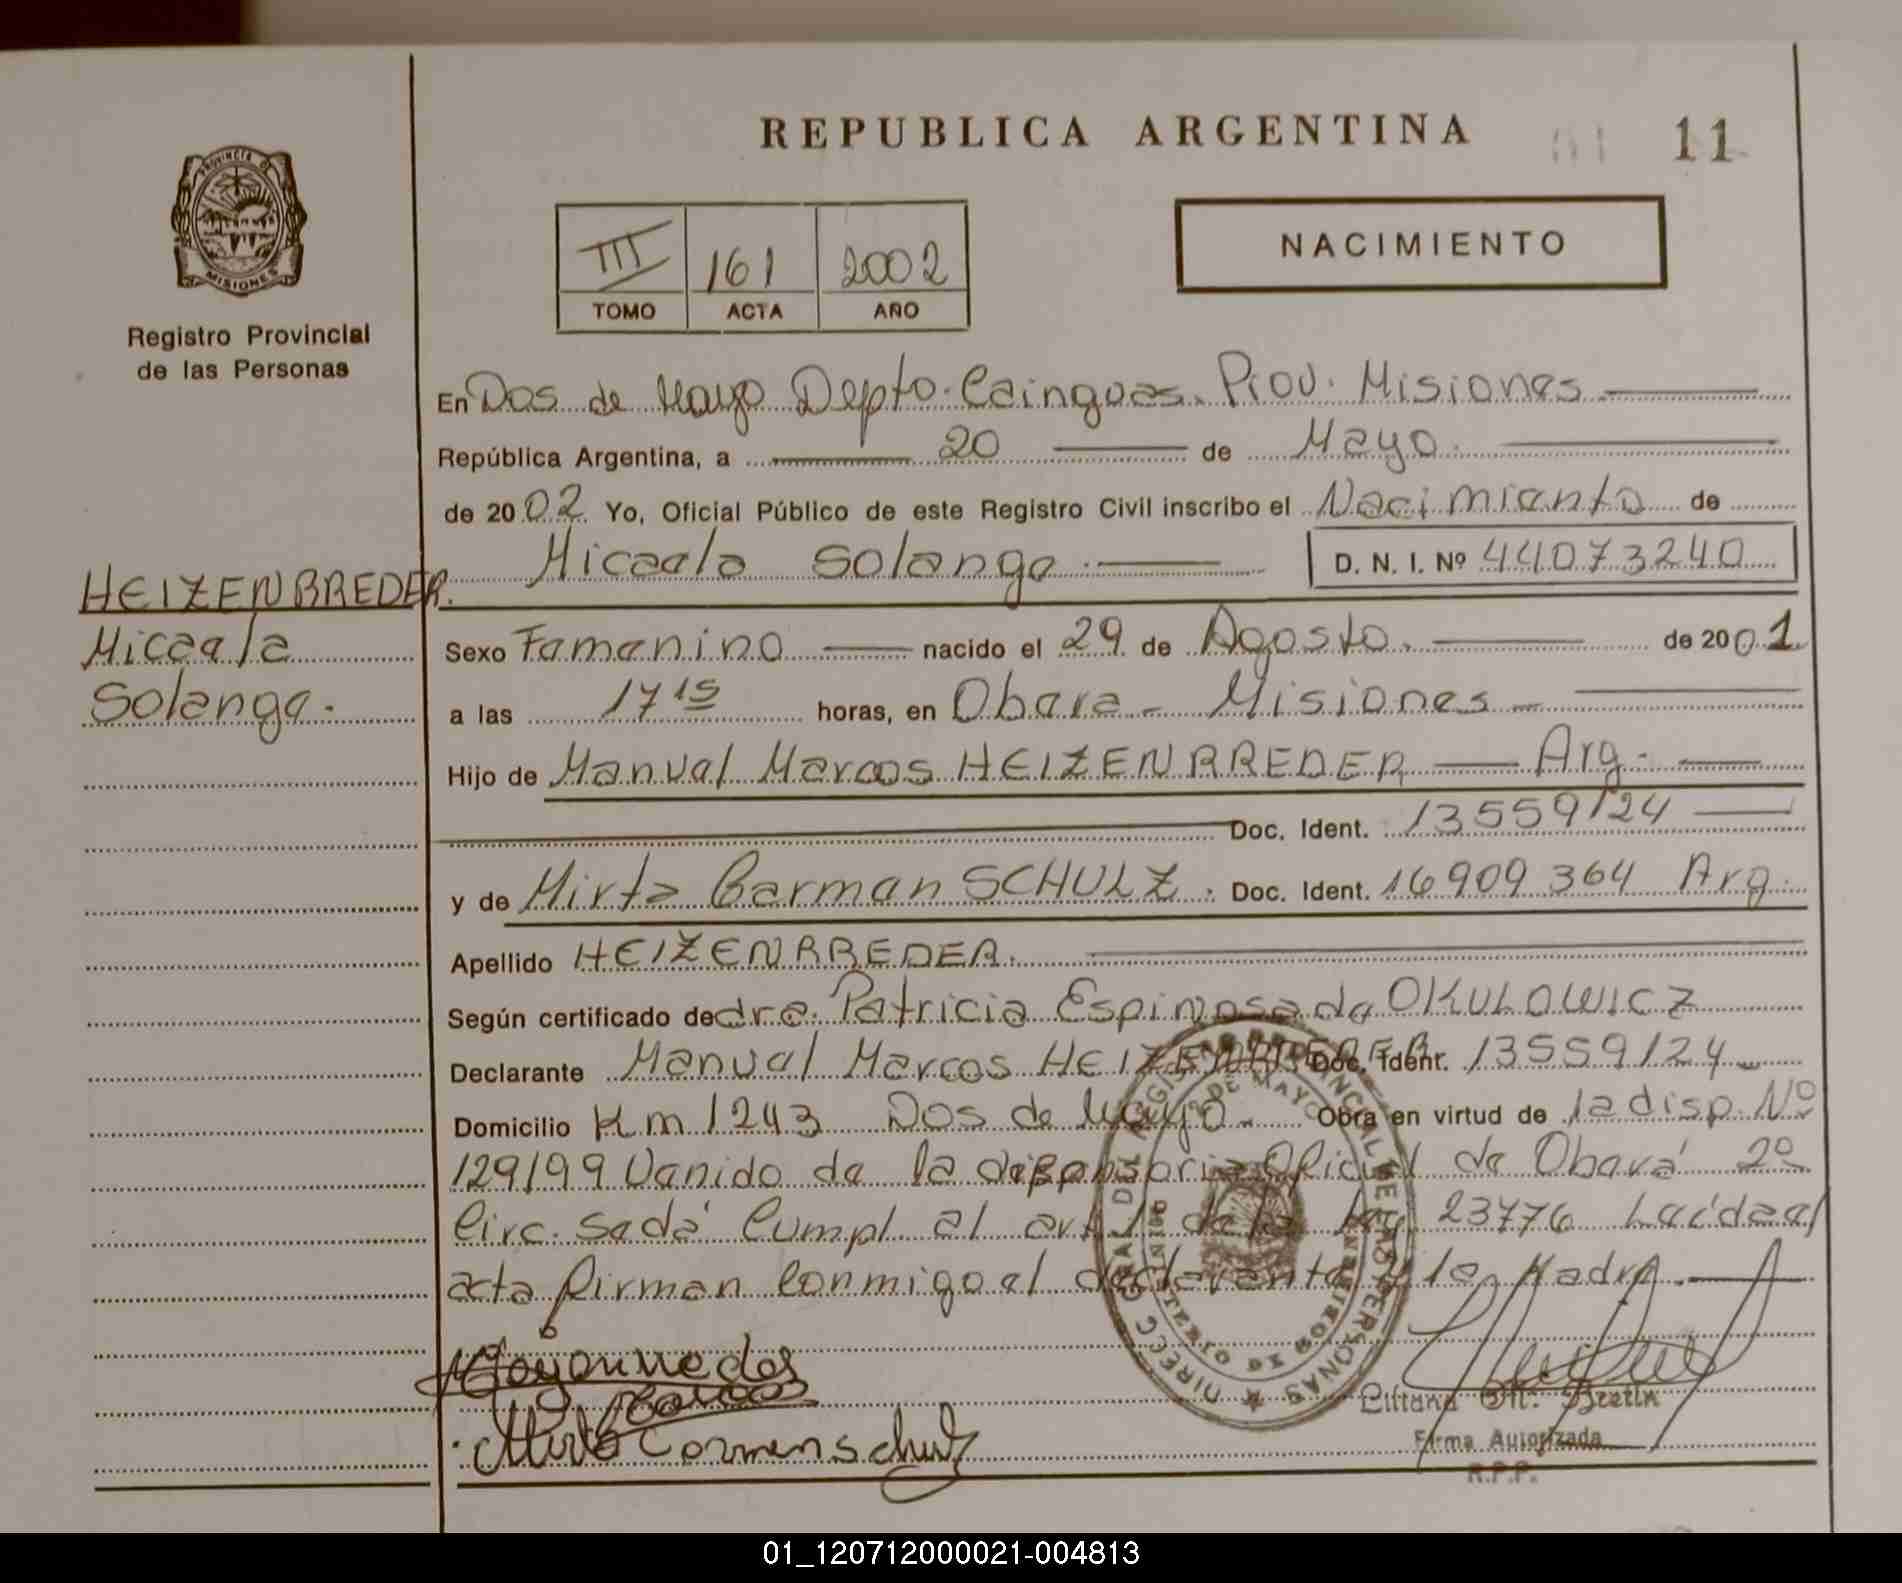 REPUBLICA ARGENTINA
11
PROVINCIA DE
MISIONES
Registro Provincial
de las Personas
III 161 2002
TOMO ACTA AÑO
NACIMIENTO
En Dos de Mayo Depto. Cainguas. Prov. Misiones
República Argentina, a 20 de Mayo.
de 2002 Yo, Oficial Público de este Registro Civil inscribo el Nacimiento de
Micaela Solange. D. N. I. Nº 44073240
HEIZENBREDER.
Micaela
Solange.
Sexo Femenino nacido el 29 de Agosto. de 2001
a las 17 15 horas, en Obera - Misiones
Hijo de Manuel Marcos HEIZENBREDER Arg.
Doc. Ident. 13559124
y de Mirta Carmen SCHULZ. Doc. Ident. 16909364 Arg.
Apellido HEIZENBREDER.
Según certificado de dra. Patricia Espinosa de OKULOWICZ
Declarante Manuel Marcos HEIZENBREDER Doc. Ident. 13559124
Domicilio Km 1243 Dos de Mayo. Obra en virtud de la disp. Nº
129/99 Venido de la Oficial de Oberá 2º
Circ. Cumpl. al art. 1 de la Ley 23776 Leída el
acta firman conmigo el declarante y la Madre.
Marcos
Mirta Carmen Schulz
Firma Autorizada
R.P.P.
01_120712000021-004813